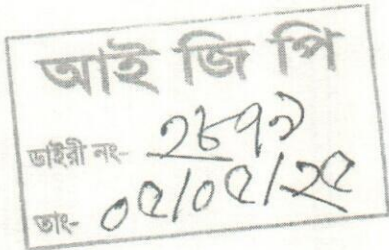 আই জি পি
ডাইরী নং- ২৮৭৯
তাং- ০৫/০৫/২৫